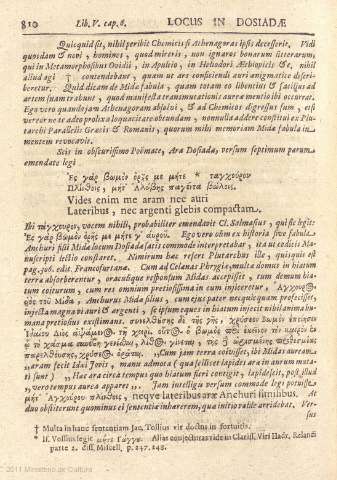 810 Lib. V. cap. 8. LOCUS IN DOSIADÆ
Quicquid sit, nihil peribit Chemicis si Athenagoras ipsis accesserit. Vidi
quosdam & novi, homines, quod mireris, non ignaros bonarum litterarum,
qui in Metamorphosibus Ovidii, in Apuleio, in Heliodori Æthiopicis &c. nihil
aliud agi † contendebant, quam ut ars conficiendi auri ænigmatice descri-
beretur. Quid dicam de Mida fabula, quam totam eo libentius & facilius ad
artem suam trahunt, quod manifesta transmutationis auræ mentio illi occurrat.
Ego vero quandoquidem Athenagoram absolvi, & ad Chemicos digressus sum, etsi
vereor ne te adeo prolixa loquacitate obtundam, nonnulla addere constitui ex Plu-
tarchi Parallelis Græcis & Romanis, quorum mihi memoriam Midæ fabula in
mentem revocavit.
Scis in obscurissimo Poëmate, Ara Dosiadæ, versum septimum parum
emendate legi
Ἐς γὰρ βωμὸν ὁρῇς με μήτε * ταγχούρου
Πλίνθοις, μήτ' Ἀλύβης παγέντα βώλοις.
Vides enim me aram nec auri
Lateribus, nec argenti glebis compactam.
Ibi ταγχούρου, vocem nihili, probabiliter emendavit Cl. Salmasius, qui sic legit:
Ἐς γὰρ βωμὸν ὁρῇς με μήτε γ' αὔρου. Ego vero cum ex historia sive fabula
Anchuri filii Midæ locum Dosiadæ satis commode interpretabar, ita ut codicis Ma-
nuscripti lectio constaret. Nimirum hæc refert Plutarchus ille, quisquis est
pag. 306. edit. Francofurtanæ. Cum ad Celænas Phrygiæ multa domus in hiatum
terræ absorberentur, oraculoque responsum Midas accepisset, tum demum hia-
tum coiturum, cum res omnium pretiosissima in eum injiceretur, Ἄγχουρος
υἱὸς τοῦ Μίδα, Anchurus Midæ filius, cum ejus pater necquicquam profecisset,
injecta magna vi auri & argenti, se ipsum eques in hiatum injecit nihil anima hu-
mana pretiosius existimans.
„aram fecit Idæi Jovis, manu admota (qua scilicet lapides ara in aurum muta-
ri sunt) „ Hæc ara circa tempus quo hiatum fieri contigit, lapidescit, post illud
„vero tempus aurea apparet „ Jam intelligis versum commode legi potuisse
μήτ' Ἀγχούρου πλίνθοις, neque lateribus aræ Anchuri similibus. At
duo obstiterunt quominus ei sententiæ inhærerem, qua initio valde arridebat. Ver-
sus
† Multa in hanc sententiam Jac. Tollius vir doctus in fortuitis.
* If. Vossius legit μήτε Γάγγου. Alias conjecturas vide in Clariss. Viri Hadr. Relandi
parte 2. diss. Miscell. p. 247. 248.
© 2011 Ministerio de Cultura